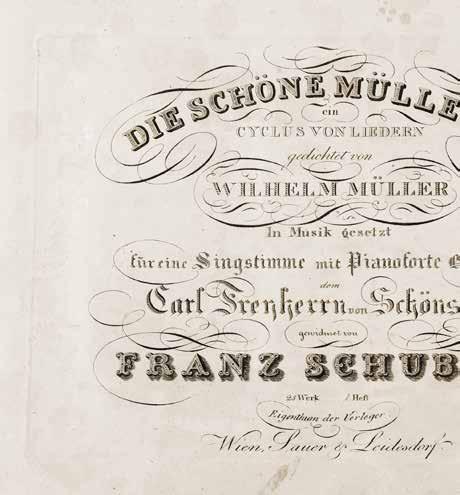 DIE SCHÖNE MÜLLE
ein
CYCLUS VON LIEDERN
gedichtet von
WILHELM MÜLLER
In Musik gesetzt
für eine Singstimme mit Pianoforte
dem
Carl Freyherrn von Schöns
gewidmet von
FRANZ SCHUB
25 Werk 1 Heft
Eigenthum der Verleger
Wien, Sauer & Leidesdorf